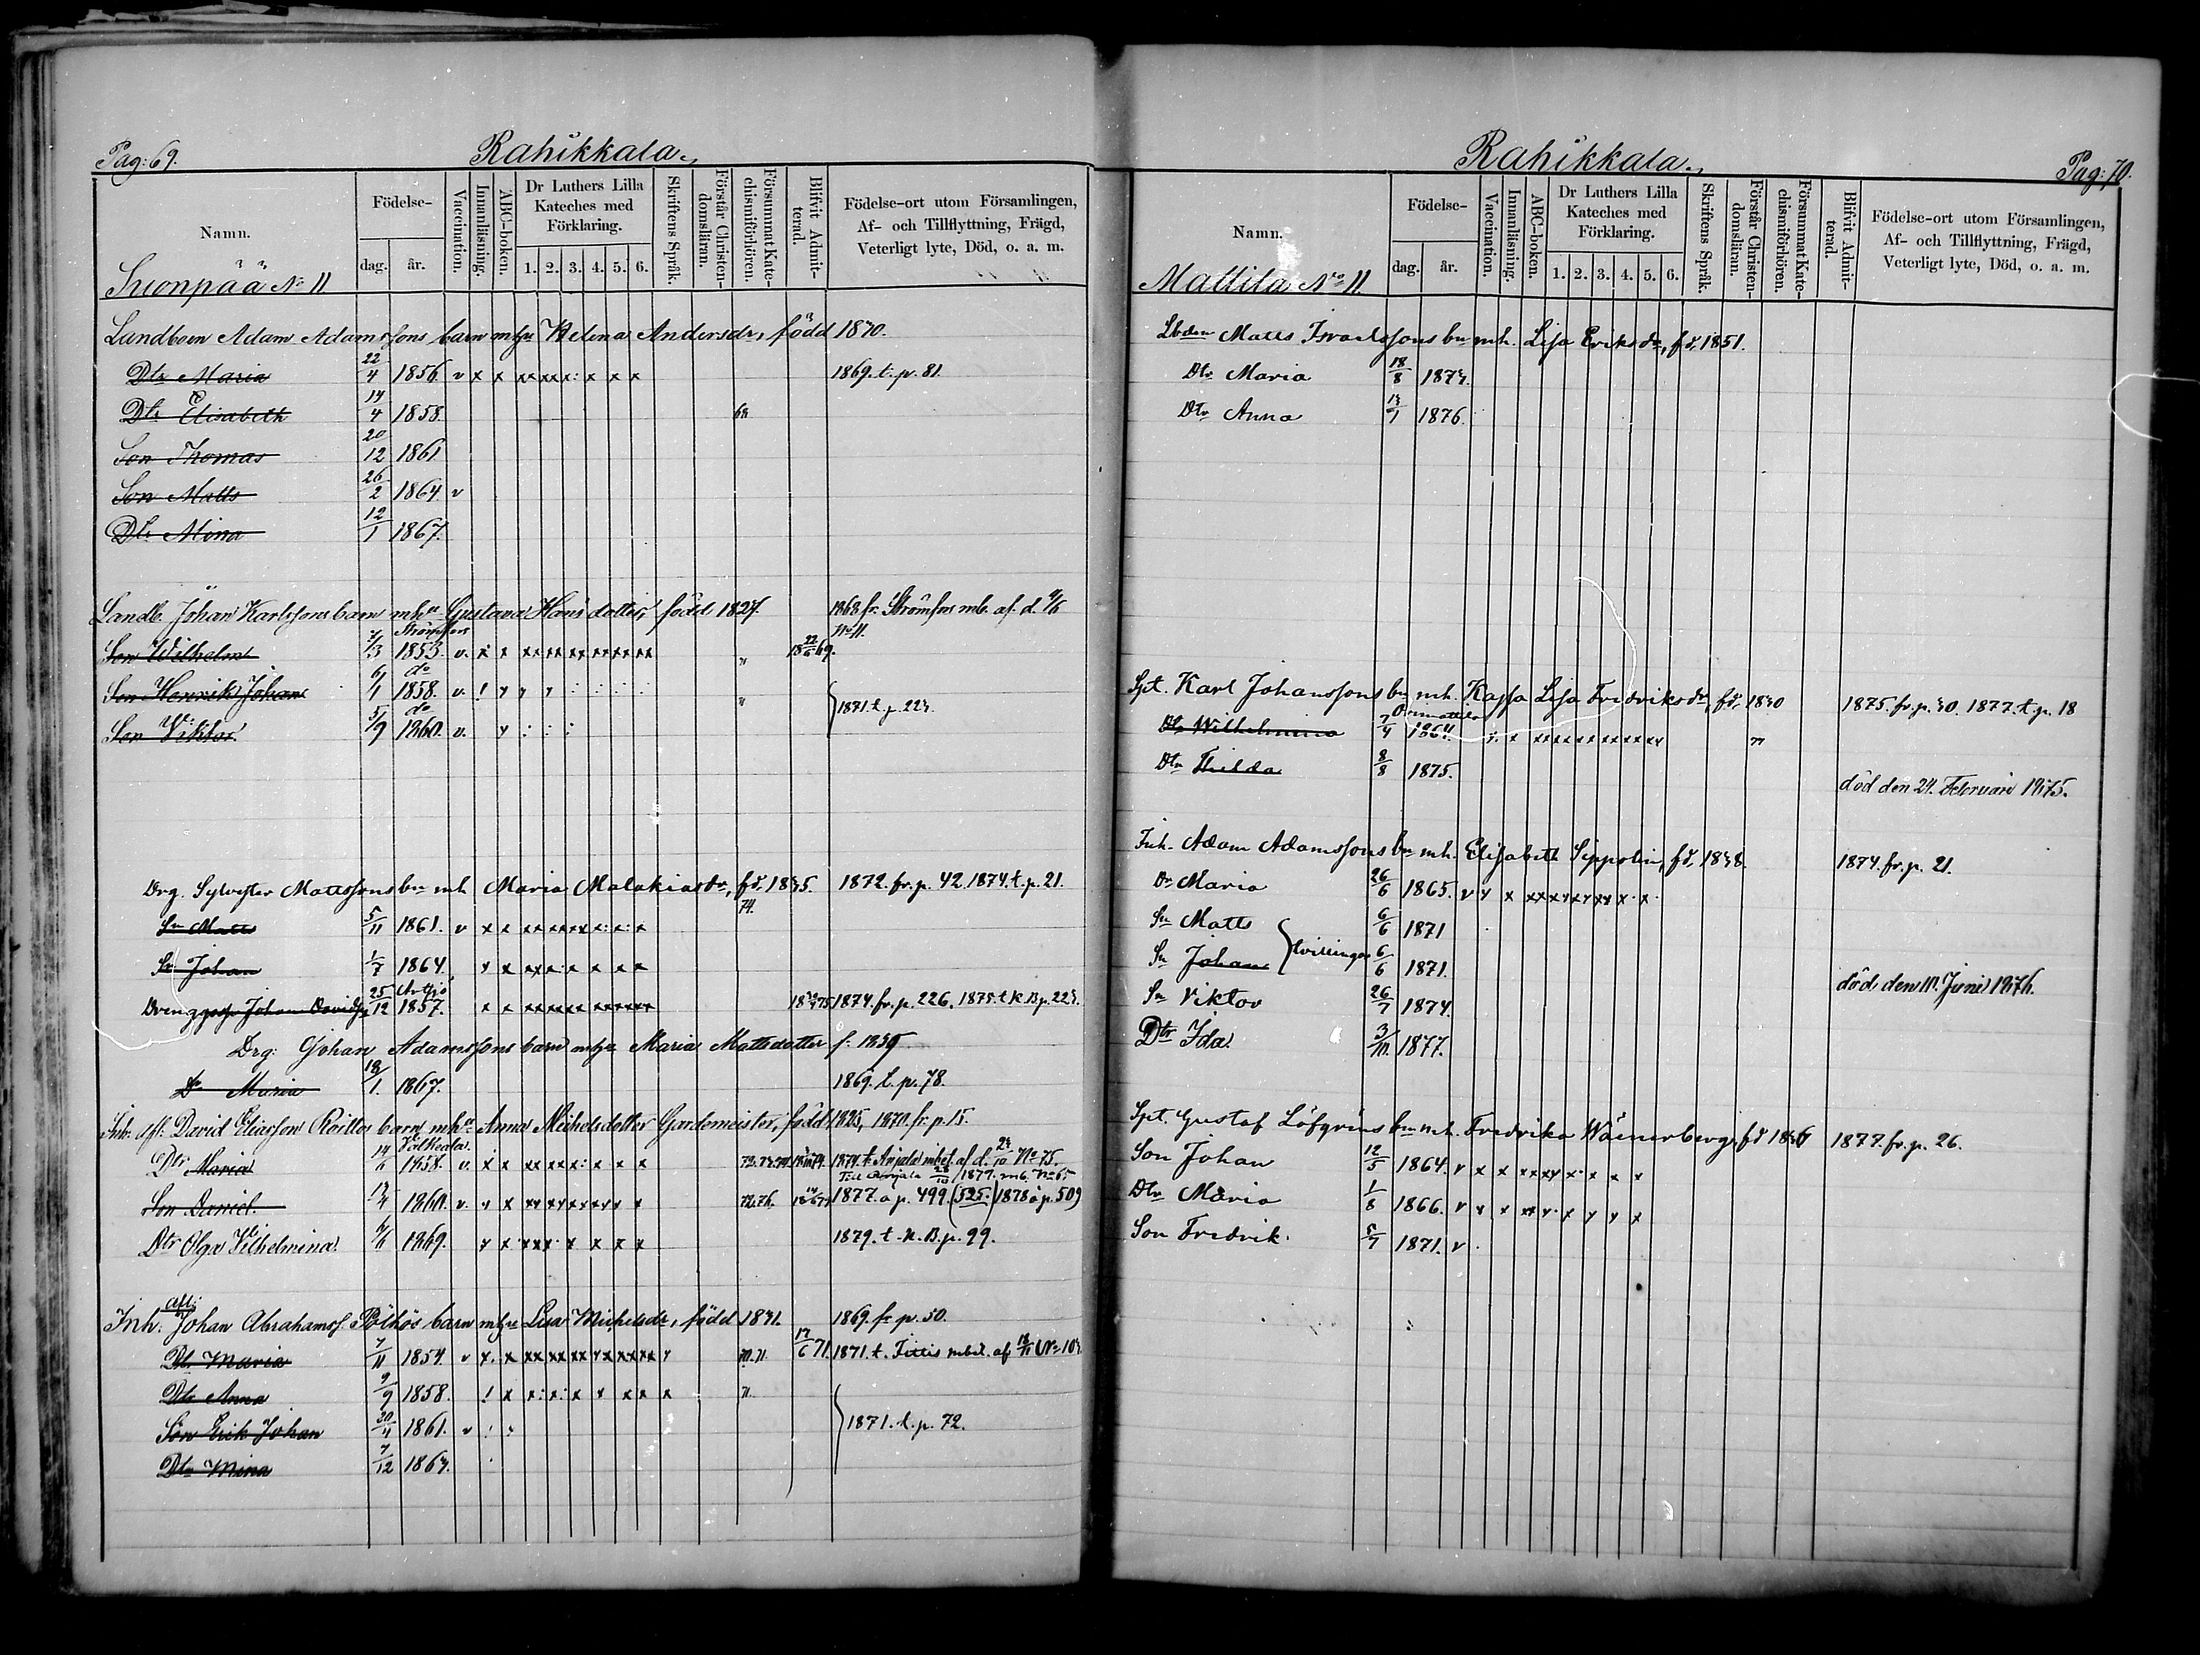 Pag: 69.
Rahikkala.
Namn.
Födelse-
dag.
år.
Vaccination.
Innanläsning.
ABC-boken.
Dr Luthers Lilla Kateches med Förklaring.
1. 2. 3. 4. 5. 6.
Skriftens Språk.
Förstår Christendomsläran.
Försummat Katechismiförhören.
Blifvit Admitterad.
Födelse-ort utom Församlingen,
Af- och Tillflyttning, Frägd,
Veterligt lyte, Död, o. a. m.
Suonpää No 11
Landboen Adam Adamssons barn mhu Helena Andersdr, född 1830.
Dtr Maria 22/4 1856 v x x xx xx x: x x x 1869. t. p. 81.
Dtr Elisabeth 14/4 1858.
Son Thomas 20/12 1861
Son Matts 26/2 1864 v
Dtr Mina 12/1 1867.
Landb. Johan Karlssons barn mhu Gustava Hansdotter, född 1827. 1868 fr. Strömfors mb. af. d.
No 11.
Strömfors
Son Wilhelm 1853. v. x x xx xx xx xx xx xx
do
Son Henrik Johan 6/1 1858. v. !
do
Son Viktor 5/9 1860. v. 1871. t. p. 223.
Drg. Sylvester Mattssons bn mh Maria Malakiasdr, fd. 1835. 1872. fr. p. 42. 1874. t. p. 21.
74.
Sn Matts 5/11 1861. v x x xx xx xx x: x: x
Sn Johan 1/7 1864. x x xx x: x x x x
Artsjö
Johan Davidss 25/12 1857. x x xx xx xx xx xx xx 1874. fr. p. 226. 1875. t. K. B. p. 223.
Drg: Johan Adamssons barn mhu Maria Mattsdotter f. 1839
Dr Maria 18/1. 1867. 1869. t. p. 78.
Inh. afl. David Eliasson Roittos barn mhu Anna Michelsdotter Gardemeister, född 1825, 1870. fr. p. 15.
Valkeala
Dtr Maria 14/6 1858. v. x x xx xx x: x x x 1874. t. Anjala mbet. af d. 23/10 No 75.
Till Anjala 1877. mb. No 65
Son Daniel. 1860. v. x x xx xx xx xx x x 72. 76. 1877. a p. 499. (525.) 1878 å p. 509
Dtr Olga Vilhelmina. 1869. 1879. t. N. B. p. 99.
afl:
Inh. Johan Abrahamss. Pölhös barn mhu Lisa Michelsdr, född 1831. 1869. fr. p. 50.
Dtr Maria 7/11 1854. v x. x xx xx xx x x xx xx x 70. 71 17/6 71. 1871. t. Tittis mbet. af
Dtr Anna 9/9 1858. ! x x: x: x x x x x 71.
Son Erik Johan 30/4 1861. v 1871. t. p. 72.
Dtr Mina 7/12 1863.
Rahikkala.
Pag: 70.
Namn.
Födelse-
dag.
år.
Vaccination.
Innanläsning.
ABC-boken.
Dr Luthers Lilla Kateches med Förklaring.
1. 2. 3. 4. 5. 6.
Skriftens Språk.
Förstår Christendomsläran.
Försummat Katechismiförhören.
Blifvit Admitterad.
Födelse-ort utom Församlingen,
Af- och Tillflyttning, Frägd,
Veterligt lyte, Död, o. a. m.
Mattila No 11.
Lbden Matts Israelssons bn mh. Lisa Eriksdr, fd. 1851.
Dtr Maria 18/8 1873.
Dtr Anna 13/1 1876.
Spt. Karl Johanssons bn mh. Kajsa Lisa Fredriksdr, fd. 1830 1875. fr. p. 30. 1877. t. p. 18
Orimattila
Dtr Wilhelmina 7/4 1864.
Dtr Hilda 8/8 1875.
död den 24. Februari 1875.
Inh. Adam Adamssons bn mh. Elisabeth Seppolin, fd. 1838. 1874. fr. p. 21.
Dr Maria 26/6 1865. v x x xx xx xx xx x. x.
Sn Matts 6/6 1871
tvillingar
Sn Johan 6/6 1871.
död den 10. Juni 1876.
Sn Viktor 26/7 1874.
Dtr Ida. 3/10. 1877.
Spt. Gustaf Löfgréns bn mh. Fredrika Wänerberg, fd 1836 1877. fr. p. 26.
Son Johan 12/5 1864. v x x xx xx x. x x x
Dtr Maria 1/8 1866. v x x xx x. x x x x
Son Fredrik. 5/7 1871. v